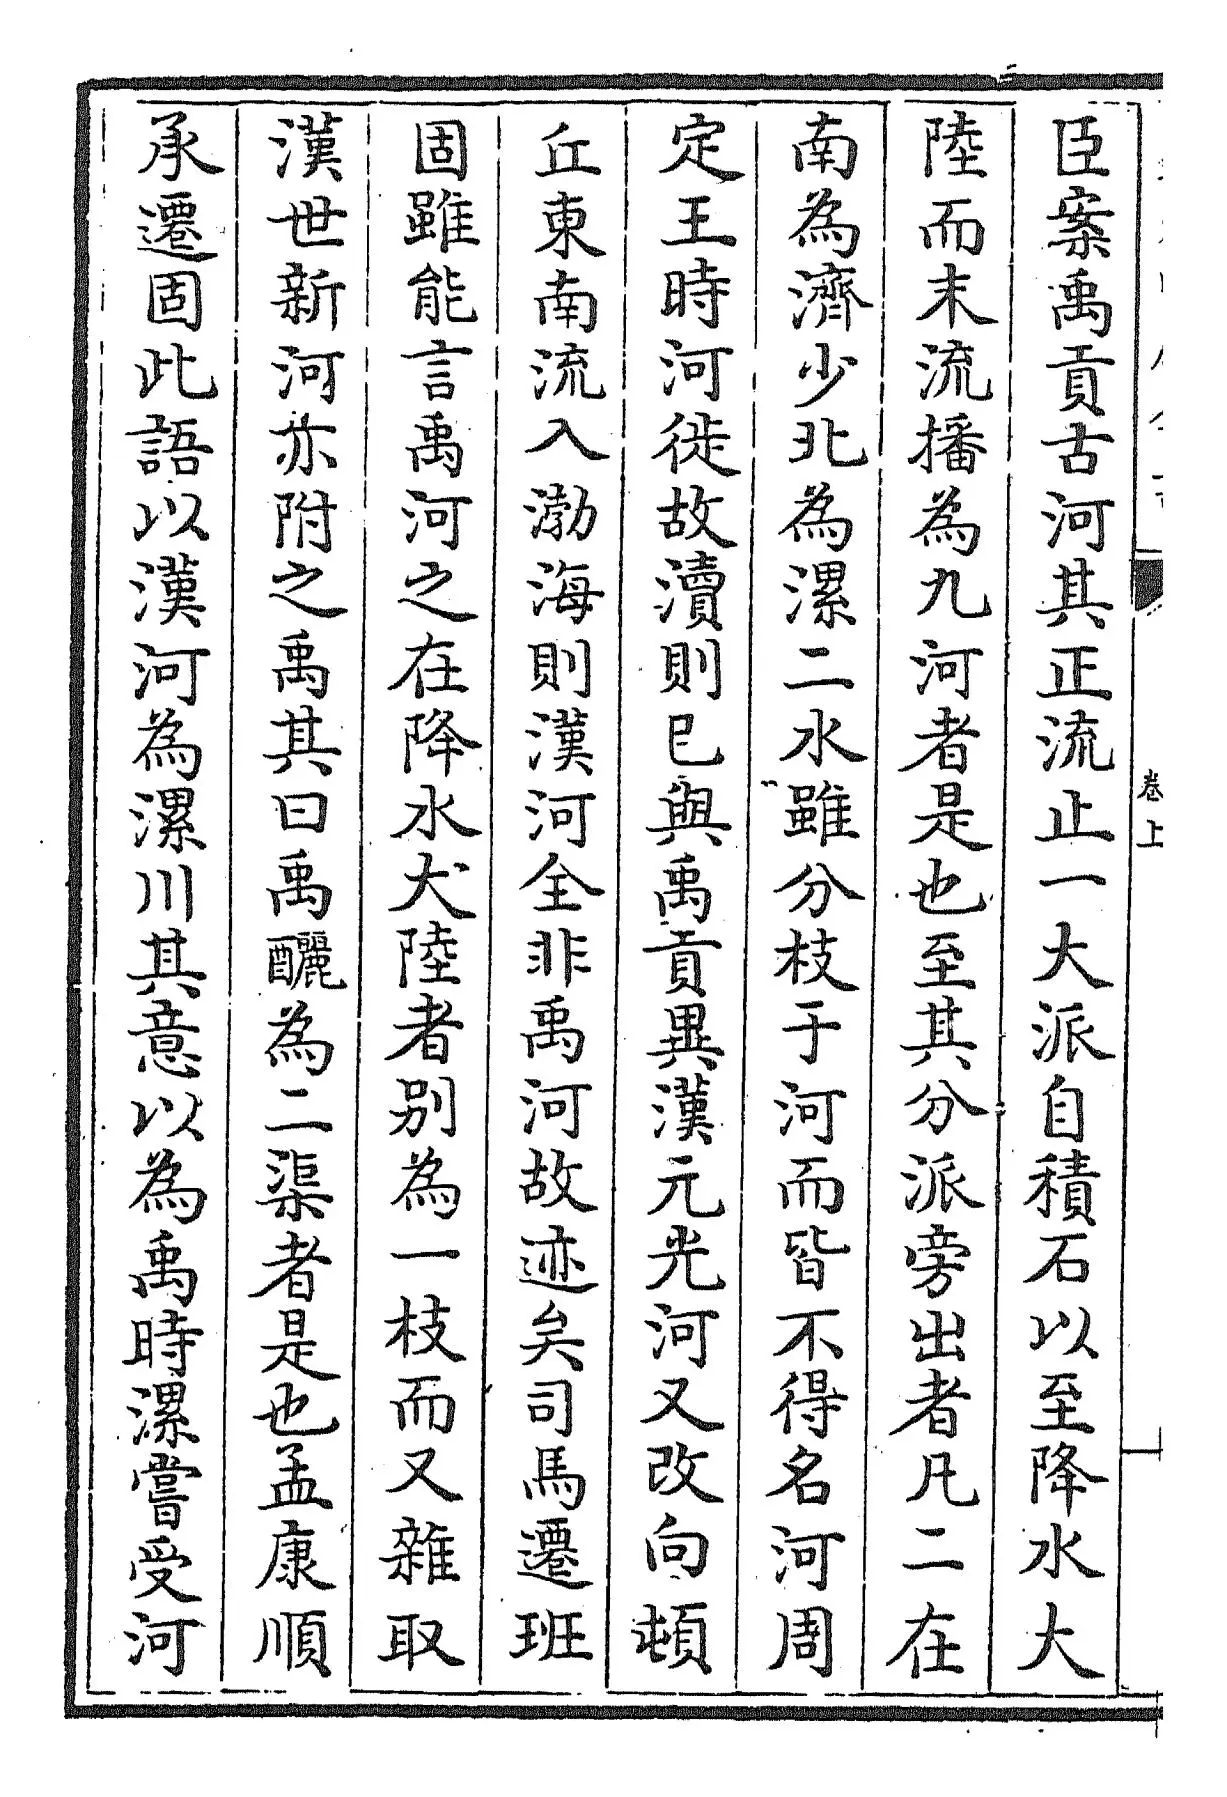 臣案禹貢古河其正流止一大派自積石以至降水大
陸而末流播為九河者是也至其分派旁出者凡二在
南為濟少北為漯二水雖分枝于河而皆不得名河周
定王時河徙故瀆則已與禹貢異漢元光河又改向頓
丘東南流入渤海則漢河全非禹河故迹矣司馬遷班
固雖能言禹河之在降水大陸者别為一枝而又雜取
漢世新河亦附之禹其曰禹釃為二渠者是也孟康順
承遷固此語以漢河為漯川其意以為禹時漯嘗受河
卷上